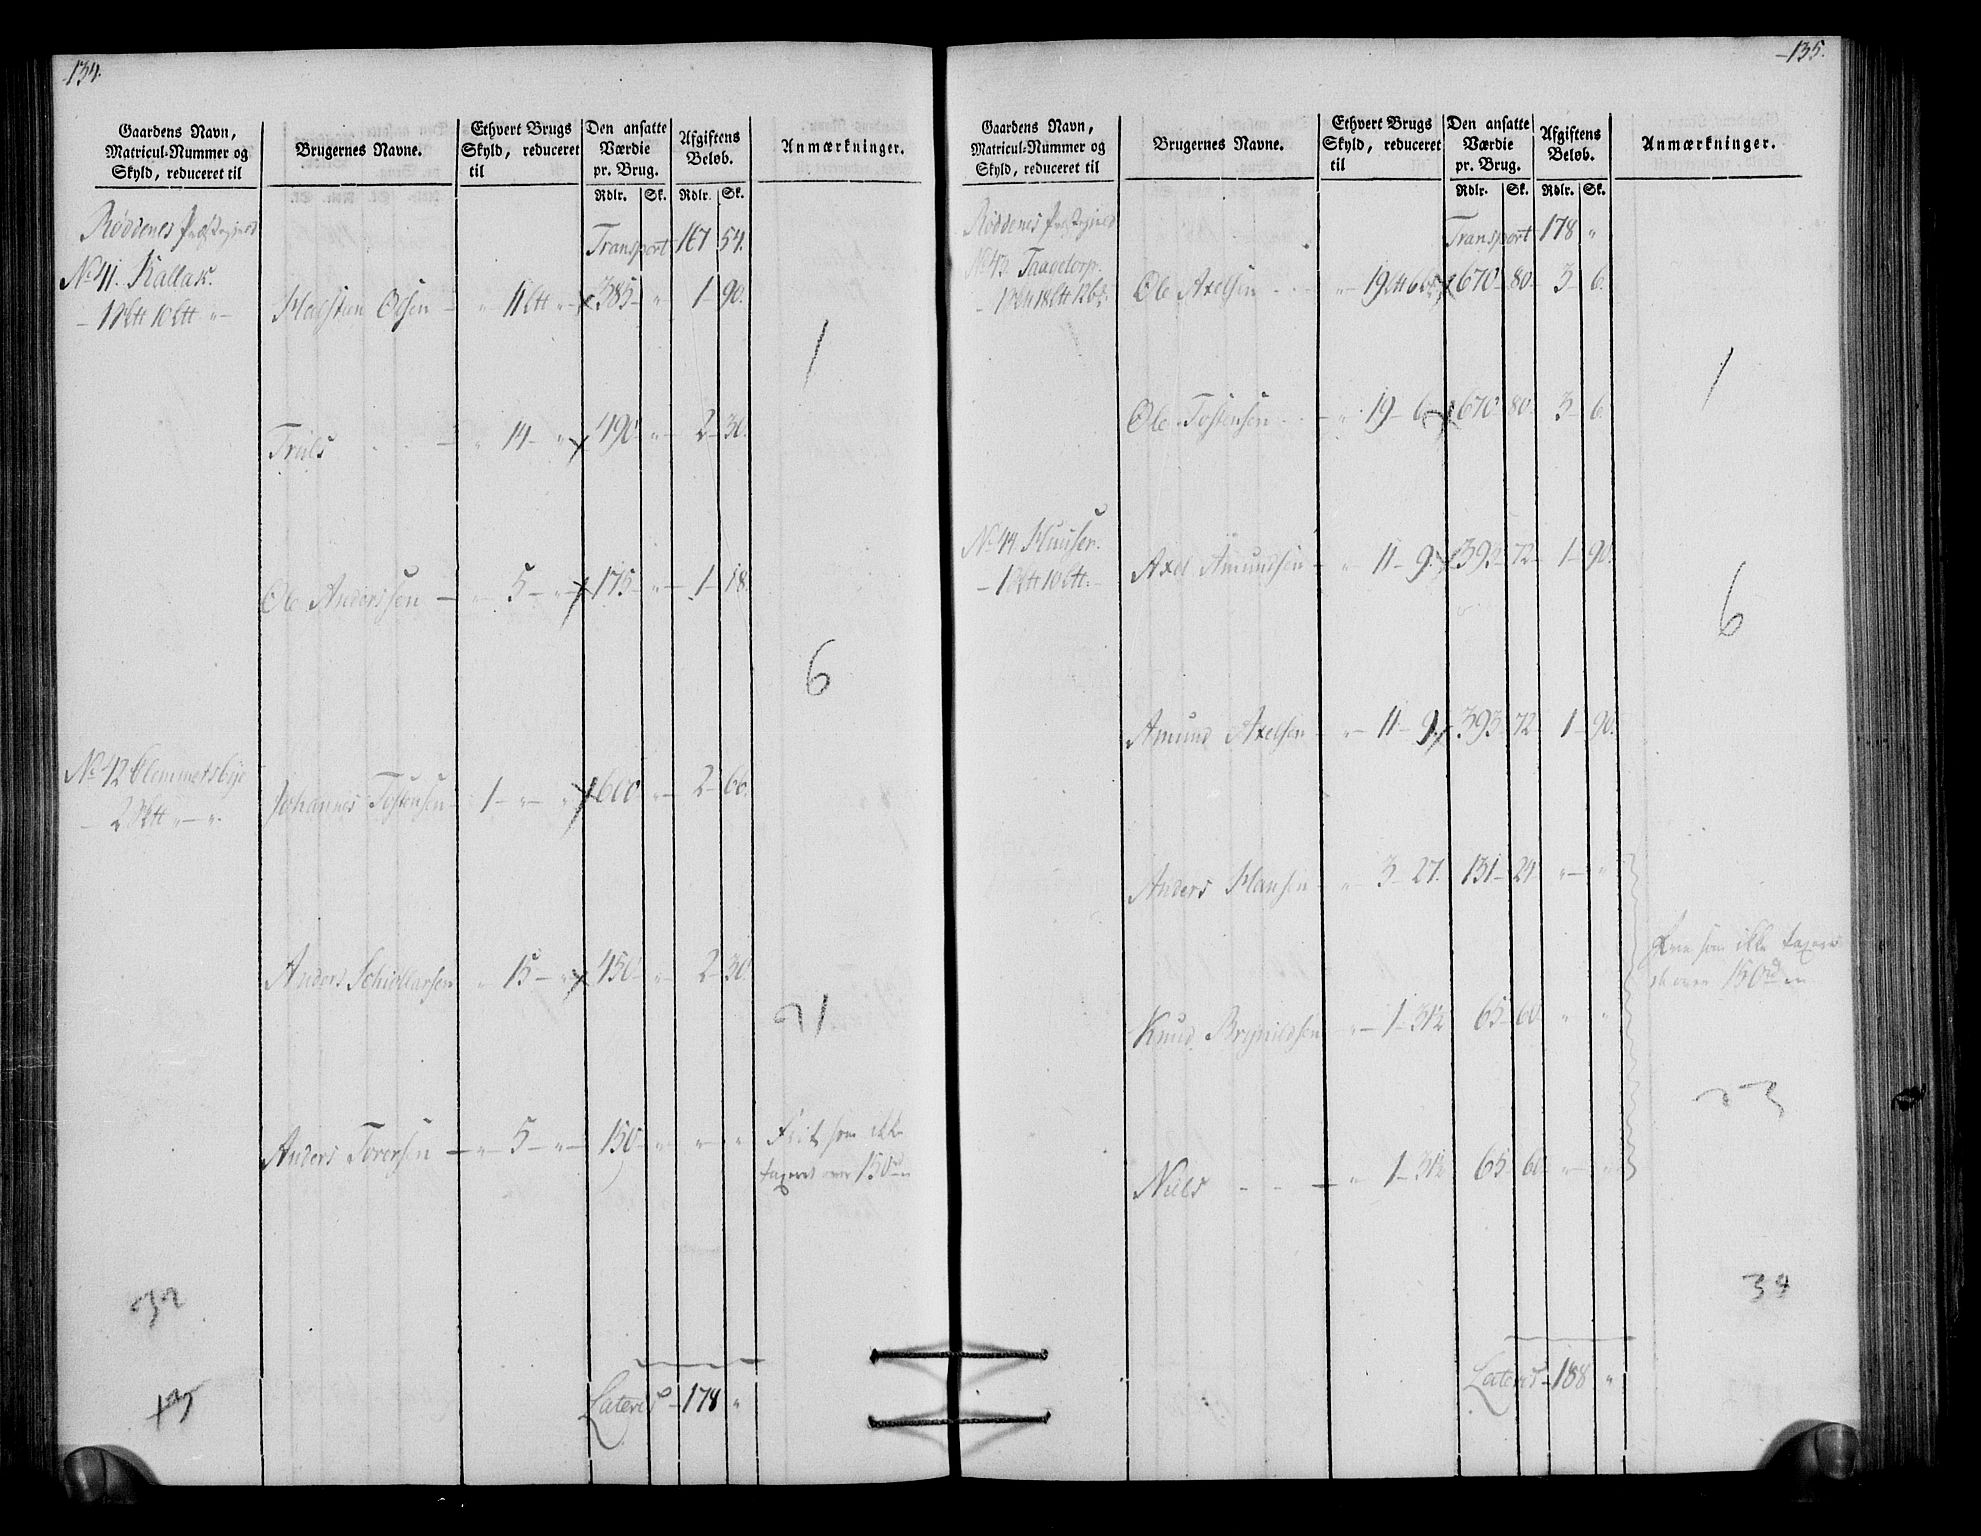 134.
Gaardens Navn, Matricul-Nummer og Skyld, reduceret til
Brugernes Navne.
Ethvert Brugs Skyld, reduceret til
Den ansatte Værdie pr. Brug.
Afgiftens Beløb.
Anmærkninger.
Rdlr. Sk. Rdlr. Sk.
Røddenes Præstegield
Transport 167 54.
No 41. Kallak.
Ole­n — " 11 Ltt " — 385 — " 1 — 90.
1
Truls — " 14 — " 490 " — 2 — 30.
Ole Anderssen — " — 5 — " — 175 — " — 1 — 18.
6
No 42 Clemmetsbye
Johannes Tostensen 1 — " — " 600 " — 2 — 66.
— 2 " — ".
Anders " 15 — " 450 — " 2 — 30
21
Anders Torersen — " — 5 — " — 150 — " — " — "
som ikke
taxeret over 150
32
13
Lateris — 178 "
135.
Gaardens Navn, Matricul-Nummer og Skyld, reduceret til
Brugernes Navne.
Ethvert Brugs Skyld, reduceret til
Den ansatte Værdie pr. Brug.
Afgiftens Beløb.
Anmærkninger.
Rdlr. Sk. Rdlr. Sk.
Røddenes Præstegield
Transport 178 "
No 43. Taagetorp.
Ole Axelsen " — 19 Ltt 6 670 — 80 — 3 — 6.
1
Ole Tostensen — " 19 — 6 — 670 80 — 3 — 6.
No 44.
Axel Amundsen — " 11 — 9 — 393 — 72 — 1 — 90.
6
Amund Axelsen — " — 11 — 9 393 — 72 1 — 90.
Anders Hansen — " — 3 — 27. 131 — 24 " — "
som ikke
over 150
Knud Brynildsen " — 1 — 31½ 65 — 60 " "
23
Niels — " 1 — 31½ 65 — 60 " — "
34
Lateris — 188 "